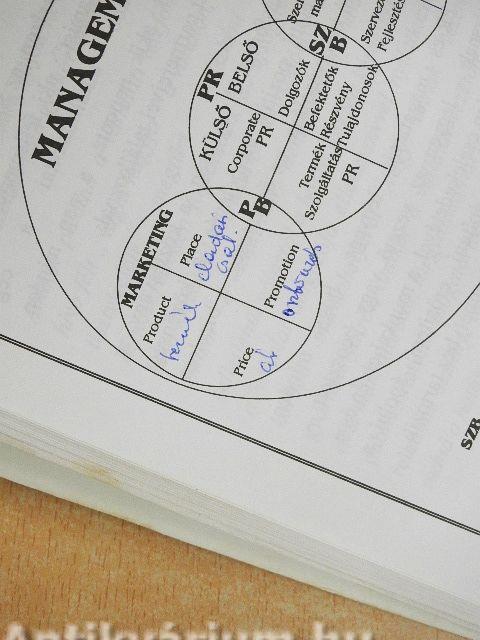 MANAGEM
PR
KÜLSŐ
BELSŐ
SZ
B
Corporate
PR
Dolgozók
Befektetők
Részvény
Tulajdonosok
Termék
Szolgáltatás
PR
Szervez
Fejlesztés
P
B
MARKETING
Product
termék
Place
eladási
Price
ár
Promotion
SZR
Antikvárium.hu